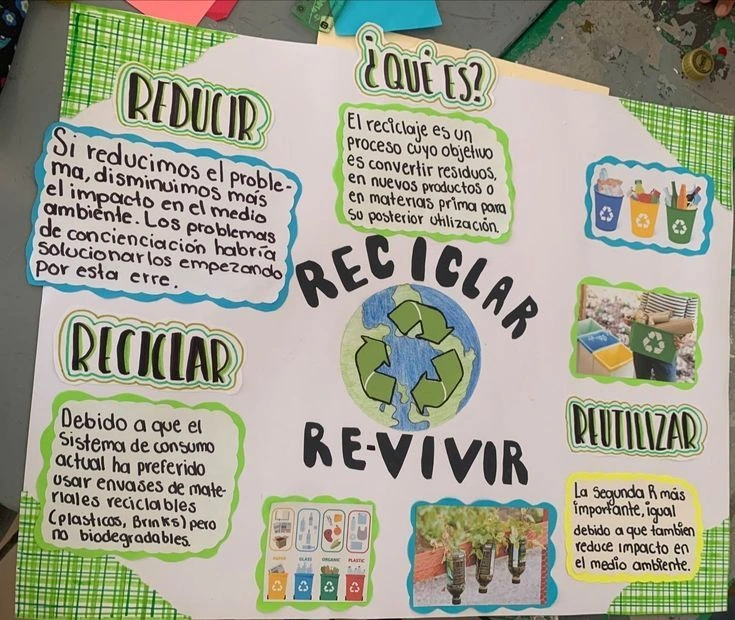 ¿QUÉ ES?
El reciclaje es un
proceso cuyo objetivo
es convertir residuos,
en nuevos productos o
en materias prima para
su posterior utilización.
REDUCIR
Si reducimos el proble-
ma, disminuimos más
el impacto en el medio
ambiente. Los problemas
de concienciación habría
solucionarlos empezando
por esta erre.
RECICLAR
RE-VIVIR
RECICLAR
Debido a que el
Sistema de consumo
actual ha preferido
usar envases de mate-
riales reciclables
(plasticos, Brinks) pero
no biodegradables.
REUTILIZAR
La segunda R más
importante, igual
debido a que tambien
reduce impacto en
el medio ambiente.
PAPER GLASS ORGANIC PLASTIC